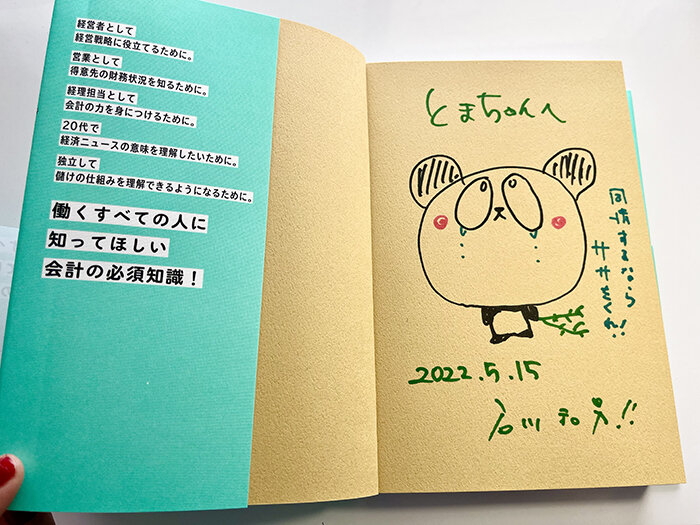 経営者として
経営戦略に役立てるために。
営業として
得意先の財務状況を知るために。
経理担当として
会計の力を身につけるために。
20代で
経済ニュースの意味を理解したいために。
独立して
儲けの仕組みを理解できるようになるために。
働くすべての人に
知ってほしい
会計の必須知識！
とまちゃんへ
同情するなら
ササをくれ!!
2022.5.15
石川和男!!